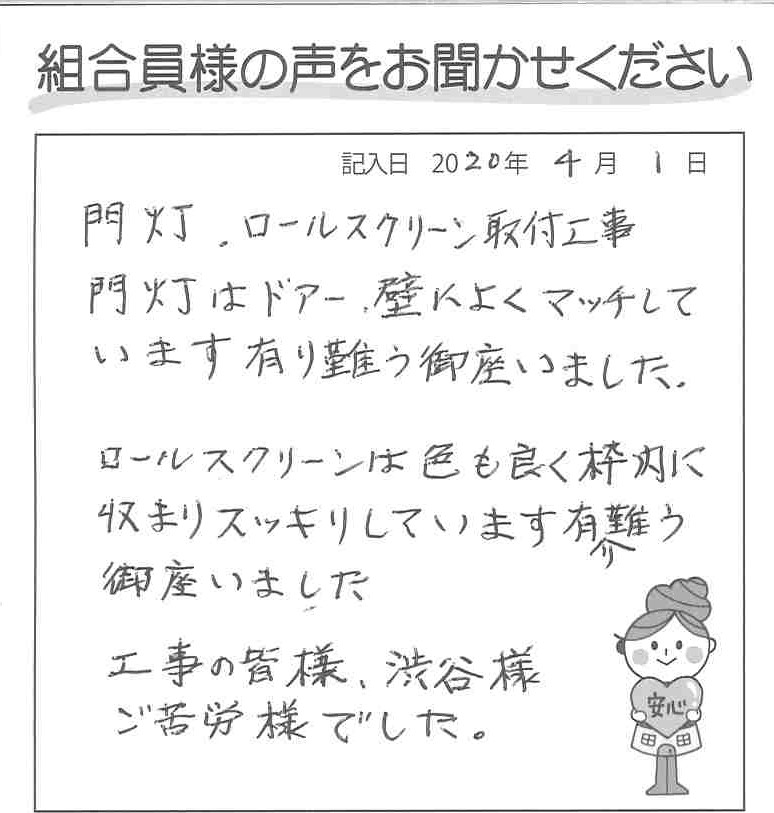 組合員様の声をお聞かせください
記入日 2020年 4月 1日
門灯、ロールスクリーン取付工事
門灯はドアー、壁によくマッチして
います有り難う御座いました。
ロールスクリーンは色も良く枠内に
収まりスッキリしています有難う
り
御座いました
工事の皆様、渋谷様
ご苦労様でした。
安心